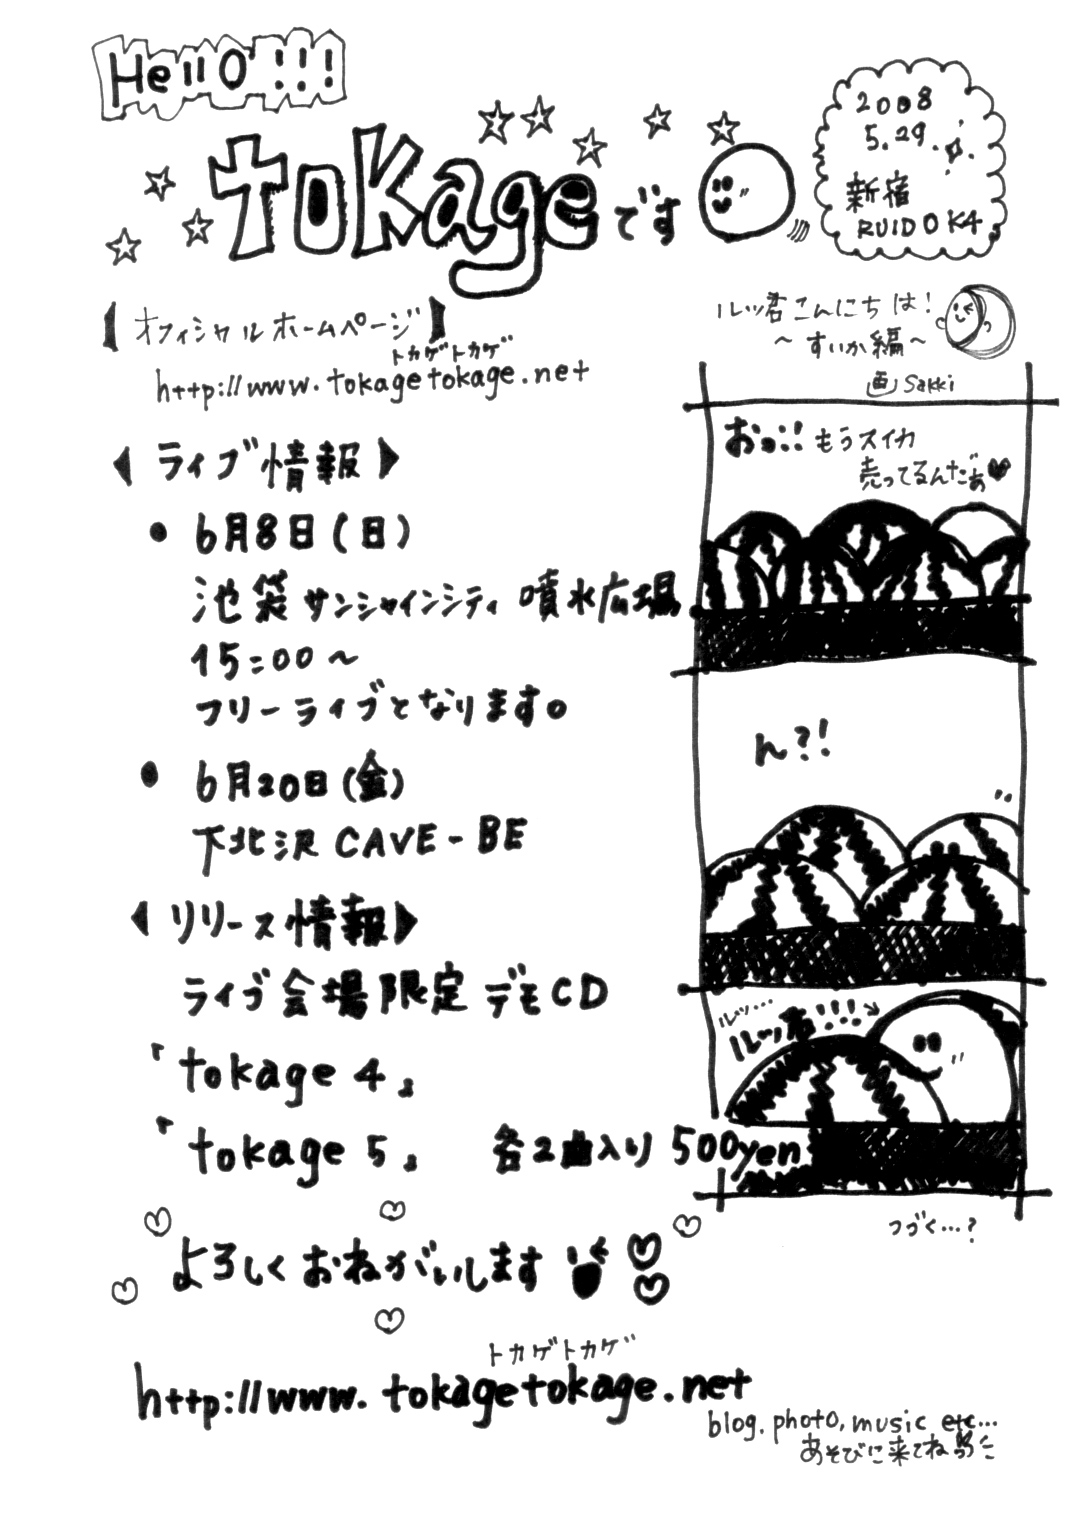 Hello!!!
tokageです
2008
5.29.
新宿
RUIDO K4
【オフィシャルホームページ】
トカゲトカゲ
http://www.tokagetokage.net
【ライブ情報】
● 6月8日(日)
池袋サンシャインシティ 噴水広場
15:00～
フリーライブとなります。
● 6月20日(金)
下北沢 CAVE-BE
【リリース情報】
ライブ会場限定デモCD
『tokage 4』
『tokage 5』 各2曲入り 500yen
よろしくおねがいします
トカゲトカゲ
http://www.tokagetokage.net
blog. photo, music etc...
あそびに来てね
ルッ君こんにちは!
～すいか編～
画 Sakki
おっ!! もうスイカ
売ってるんだぁ♥
ん?!
ルッ…
ルッ君!!!
つづく…?